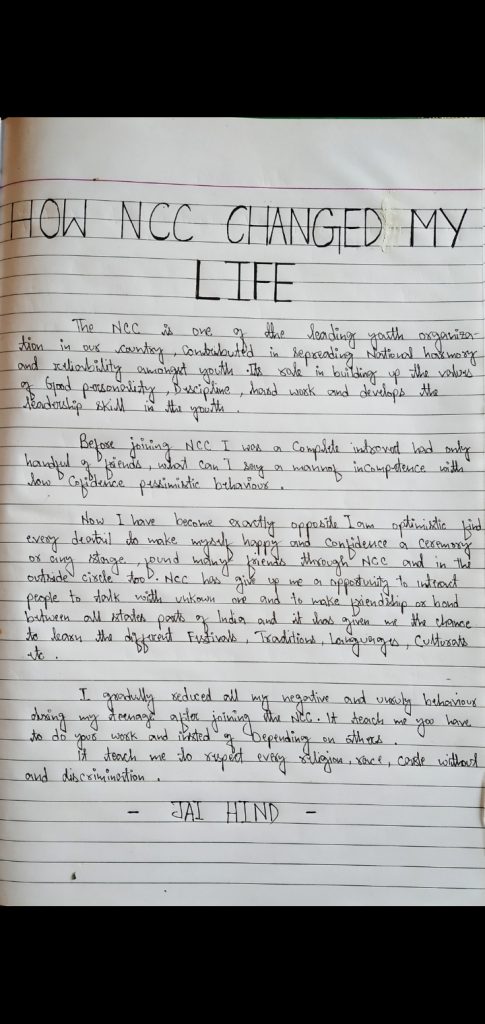 HOW NCC CHANGED MY
LIFE
The NCC is one of the leading youth organiza-
tion in our country, Contributed in sepreading National harmony
and reliability amongst youth. Its role in building up the values
of Good personality, Discipline, hard work and develops the
leadership skill in the youth.
Before joining NCC I was a Complete introvert had only
handful of friends, what can I say a man of incompetence with
low Cofidence pessimistic behaviour.
Now I have become exactly opposite I am optimistic find
every deatail do make myself happy and Confidence a ceremony
or any stage, found many friends through NCC and in the
outside circle too. NCC has give up me a opportunity to intract
people to talk with unkown one and to make friendship or bond
between all states parts of India and it has given me the chance
to learn the different Festivals, Traditions, Languages, Culturats
etc.
I gradually reduced all my negative and unruly behaviour
during my teenage after joining the NCC. It teach me you have
to do your work and insted of Depending on others.
it teach me to respect every religion, race, caste without
and discrimination.
- JAI HIND -